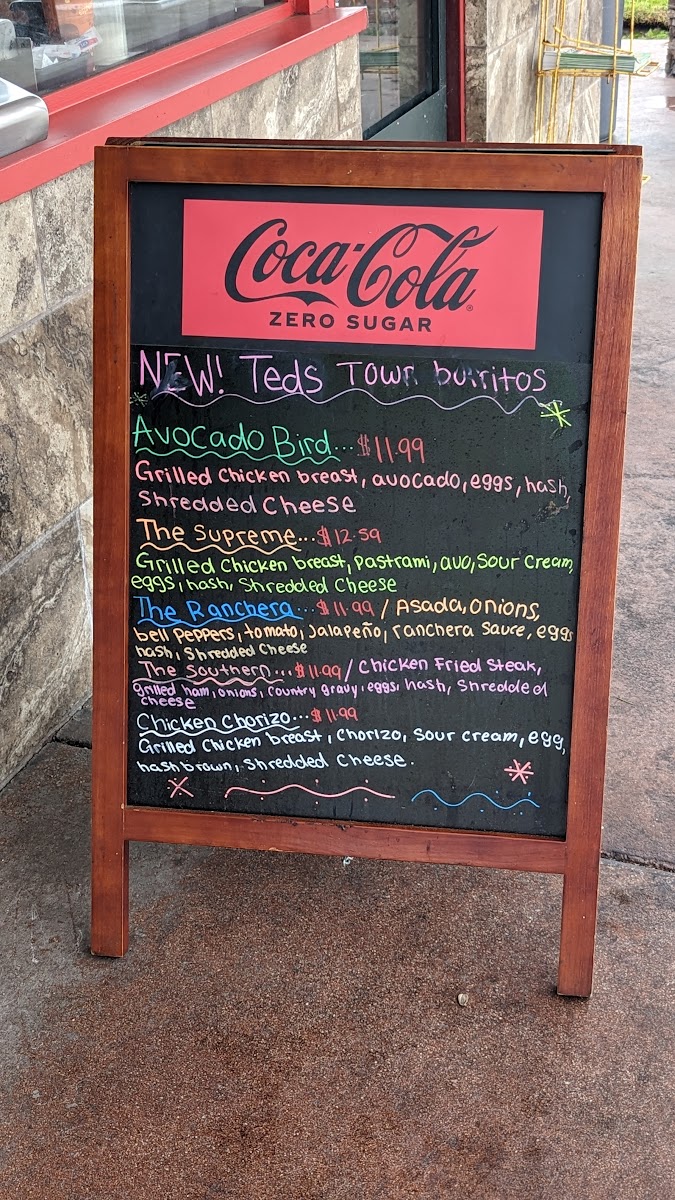 Coca-Cola
ZERO SUGAR
NEW! Teds Town burritos
Avocado Bird... $11.99
Grilled Chicken breast, avocado, eggs, hash,
Shredded Cheese
The Supreme... $12.59
Grilled Chicken breast, Pastrami, avo, Sour Cream,
eggs, hash, Shredded Cheese
The Ranchera... $11.99 / Asada, onions,
bell Peppers, tomato, Jalapeño, ranchera Sauce, eggs
hash, Shredded Cheese
The Southern... $11.99 / Chicken Fried Steak,
grilled ham, onions, Country gravy, eggs, hash, Shredded
cheese
Chicken Chorizo... $11.99
Grilled Chicken breast, Chorizo, Sour cream, egg,
hashbrown, Shredded Cheese.